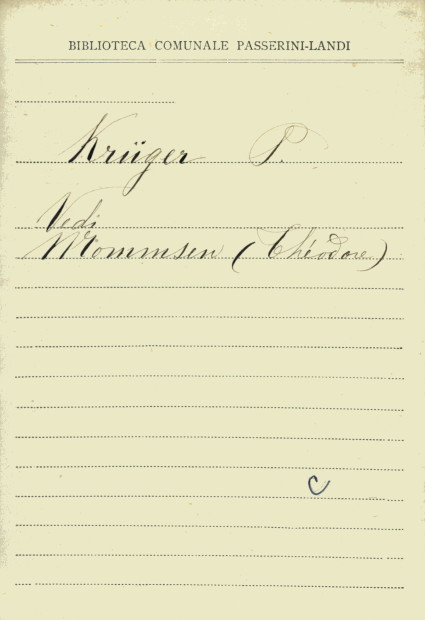 BIBLIOTECA COMUNALE PASSERINI-LANDI
Krüger P.
Vedi
Mommsen (Théodore)
C